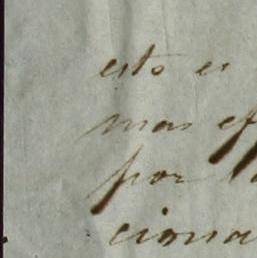 esto es
mas ef
por
ciona